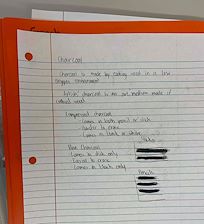 Charcoal
Charcoal is made by cooking wood in a low
oxygen environment
Artists' charcoal is an art medium made of
charred wood.
Compressed charcoal
- Comes in both pencil or stick
- Harder to erase
- Comes in black or white
Sticks
Vine Charcoal
- Comes in stick only
- Easier to erase
- Comes in black only
Pencils